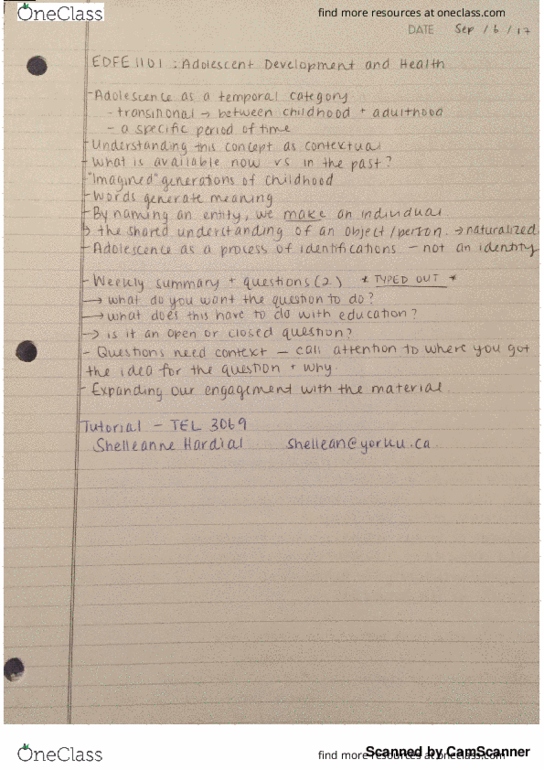 OneClass
find more resources at oneclass.com
DATE Sep / 6 / 17
EDFE 1101 : Adolescent Development and Health
- Adolescence as a temporal category
- transitional → between childhood + adulthood
- a specific period of time
- Understanding this concept as contextual
- What is available now vs in the past?
- "Imagined" generations of childhood
- Words generate meaning
- By naming an entity, we make an individual
↳ the shared understanding of an object/person. → naturalized
- Adolescence as a process of identifications - not an identity
- Weekly summary + questions (2) * TYPED OUT *
→ what do you want the question to do?
→ what does this have to do with education?
→ is it an open or closed question?
- Questions need context - call attention to where you got
the idea for the question + why.
- Expanding our engagement with the material.
Tutorial - TEL 3069
Shelleanne Hardial shellean@yorku.ca
OneClass
find more resources at oneclass.com
Scanned by CamScanner